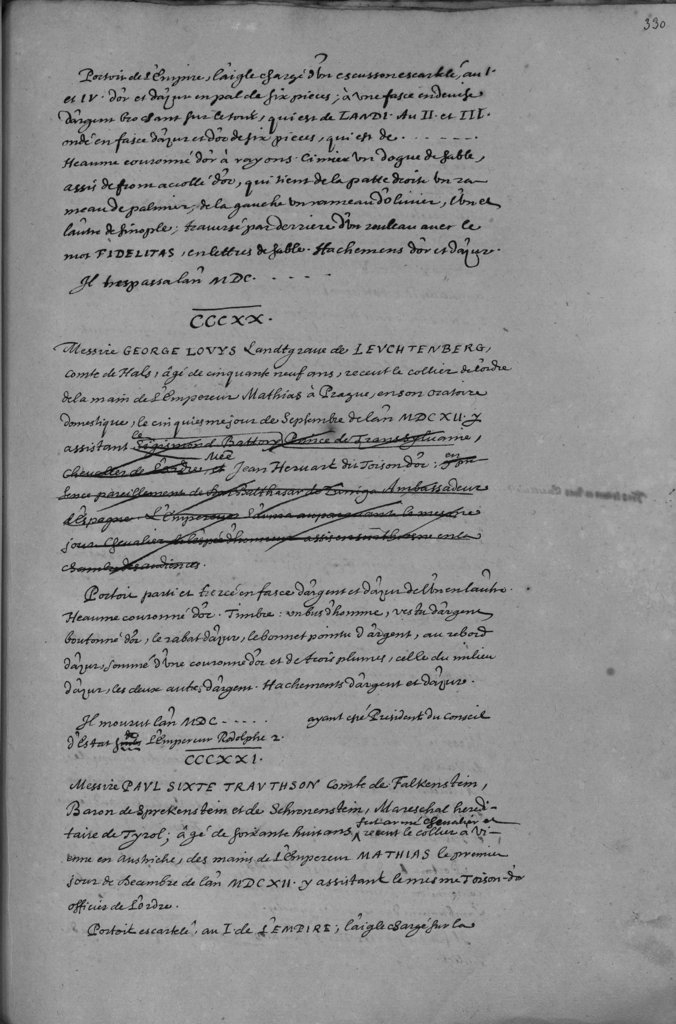 330
Portoit de l'Empire, l'aigle chargé d'un escusson escartelé, au I.
et IV. d'or et d'azur en pal de six pieces; à une fasce en devise
d'argent brochant sur le tout, qui est de LANDI. Au II. et III.
ondé en fasce d'azur et d'or de six pieces, qui est de . - - - - - -
Heaume couronné d'or à rayons. Cimier un dogue de sable,
assis de front accollé d'or, qui tient de la patte droite un ra-
meau de palmier, de la gauche un rameau d'olivier, l'un et
l'autre de sinople; traversé par derriere d'un rouleau avec le
mot FIDELITAS, en lettres de sable. Hachemens d'or et d'azur.
Il trespassa l'an MDC. - - - -
CCCXX.
Messire GEORGE LOUYS Landtgrave de LEUCHTENBERG,
Comte de Hals, âgé de cinquante neuf ans, receut le collier de l'ordre
de la main de l'Empereur Mathias à Prague, en son oratoire
domestique, le cinquiesme jour de Septembre de l'an MDCXII. y
assistant le Sigismond Battory Prince de Transsylvanie,
Chevalier de l'ordre, et Mre Jean Hervart dit Toison d'or: en
sence pareillement de Balthasar de Zuniga Ambassadeur
d'Espagne. L'Empereur l'avoit auparavant le mesme
jour Chevalier de l'espée d'honneur assis en son throsne en la
chambre des audiences.
Portoit parti et tiercé en fasce d'argent et d'azur de l'un en l'autre.
Heaume couronné d'or. Timbre: un bust d'homme, vestu d'argent,
boutonné d'or, le rabat d'azur, le bonnet pointu d'argent, au rebord
d'azur, sommé d'une couronne d'or et de trois plumes, celle du milieu
d'azur, les deux autres d'argent. Hachements d'argent et d'azur.
Il mourut l'an MDC - - - - . ayant esté President du Conseil
d'Estat de l'Empereur Rodolphe 2.
CCCXXI.
Messire PAUL SIXTE TRAUTHSON Comte de Falkenstein,
Baron de Sprekenstein et de Schronenstein, Mareschal heredi-
taire de Tyrol, âgé de soixante huit ans, fut armé Chevalier et receut le collier à Vi-
enne en Austriche, des mains de l'Empereur MATHIAS le premier
jour de Decembre de l'an MDCXII. y assistant le mesme Toison-d'or
officier de l'ordre.
Portoit escartelé, au I. de l'EMPIRE, l'aigle chargé sur la